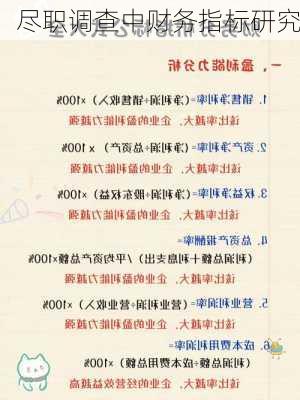 尽职调查中财务指标研究
一、盈利能力分析
1. 销售净利率=(净利润÷销售收入)×100%
该比率越大，企业的盈利能力越强
2. 资产净利率=(净利润÷总资产) ×100%
该比率越大，企业的盈利能力越强
3. 权益净利率=(净利润÷股东权益)×100%
该比率越大，企业的盈利能力越强
4. 总资产报酬率=
(利润总额+利息支出)/平均资产总额×100%
该比率越大，企业的盈利能力越强
5. 营业利润率=(营业利润÷营业收入)×100%
该比率越大，企业的盈利能力越强
6. 成本费用利润率=
(利润总额÷成本费用总额)×100%
该比率越大，企业的经营效益越高